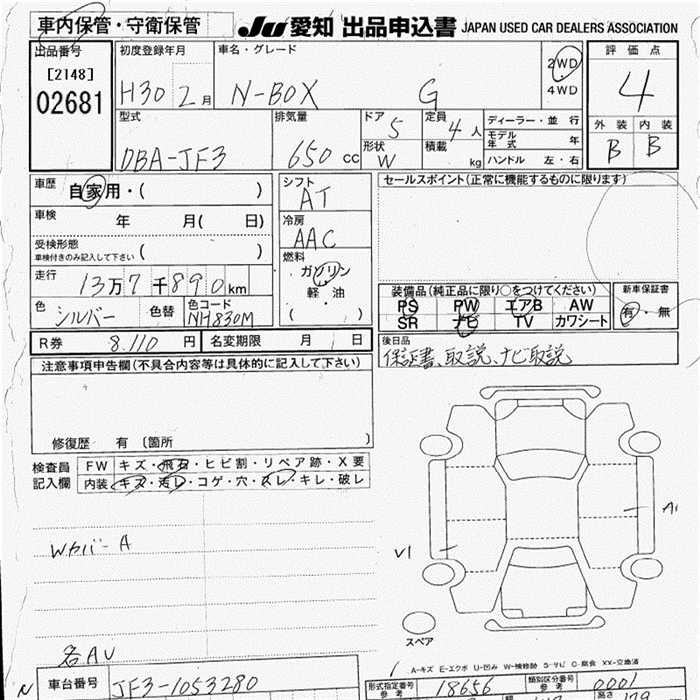 車内保管・守衛保管
JU 愛知 出品申込書 JAPAN USED CAR DEALERS ASSOCIATION
出品番号
[2148]
02681
初度登録年月
H30 2月
車名・グレード
N-BOX G
2WD
4WD
評価点
4
型式
DBA-JF3
排気量
650 cc
ドア 5
形状 W
定員 4人
積載 kg
ディーラー・並行
モデル年式 年
ハンドル 左・右
外装 内装
B B
車歴 自家用・( )
車検 年 月( 日)
受検形態
車検付きのみ記入して下さい ( )
走行 13万7千890km
色 シルバー 色替 色コード NH830M
シフト
AT
冷房
AAC
燃料
ガソリン
軽・油
( )
セールスポイント(正常に機能するものに限ります)
装備品(純正品に限り○をつけてください)
PS PW エアB AW
SR ナビ TV カワシート
新車保証書
有・無
R券 8.110円 名変期限 月 日
後日品
保証書、取説、ナビ取説
注意事項申告欄(不具合内容等は具体的に記入して下さい)
修復歴 有 〔箇所 〕
検査員 FW キズ・飛石・ヒビ割・リペア跡・X要
記入欄 内装 キズ・汚レ・コゲ・穴・スレ・キレ・破レ
Wカバ-A
各AU
A1
V1
スペア
A-キズ E-エクボ U-凹み W-補修跡 S-サビ C-腐食 XX-交換済
車台番号 JF3-1053280
形式指定番号 参考 18656
類別区分番号 参考 0001
N